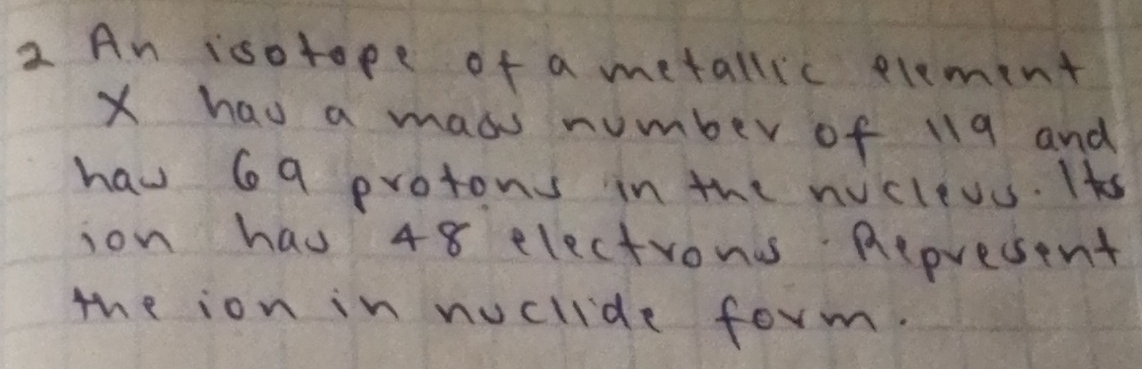 2 An isotope of a metallic element
X has a mass number of 119 and
has 69 protons in the nucleus. Its
ion has 48 electrons. Represent
the ion in nuclide form.